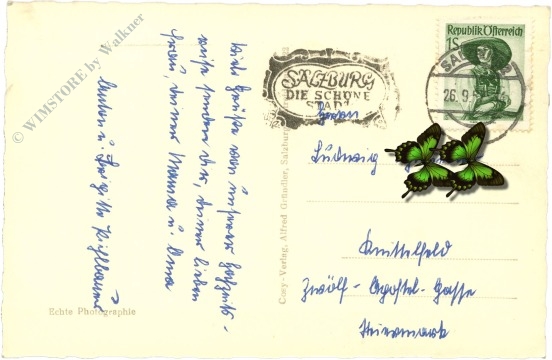 © WIMSTORE by Walkner
Viele Grüße von unserer Hochzeits-
reise senden dir, deiner lieben
Frau, deiner Mama u. Oma
Anton u. Brigitte
Echte Photographie
Cosy-Verlag, Alfred Gründler, Salzburg
SALZBURG
DIE SCHÖNE
STADT
Republik Österreich
1S
SALZBURG
26.9.5
Herrn
Ludwig
Knittelfeld
Zwölf-Apostel-Gasse
Steiermark